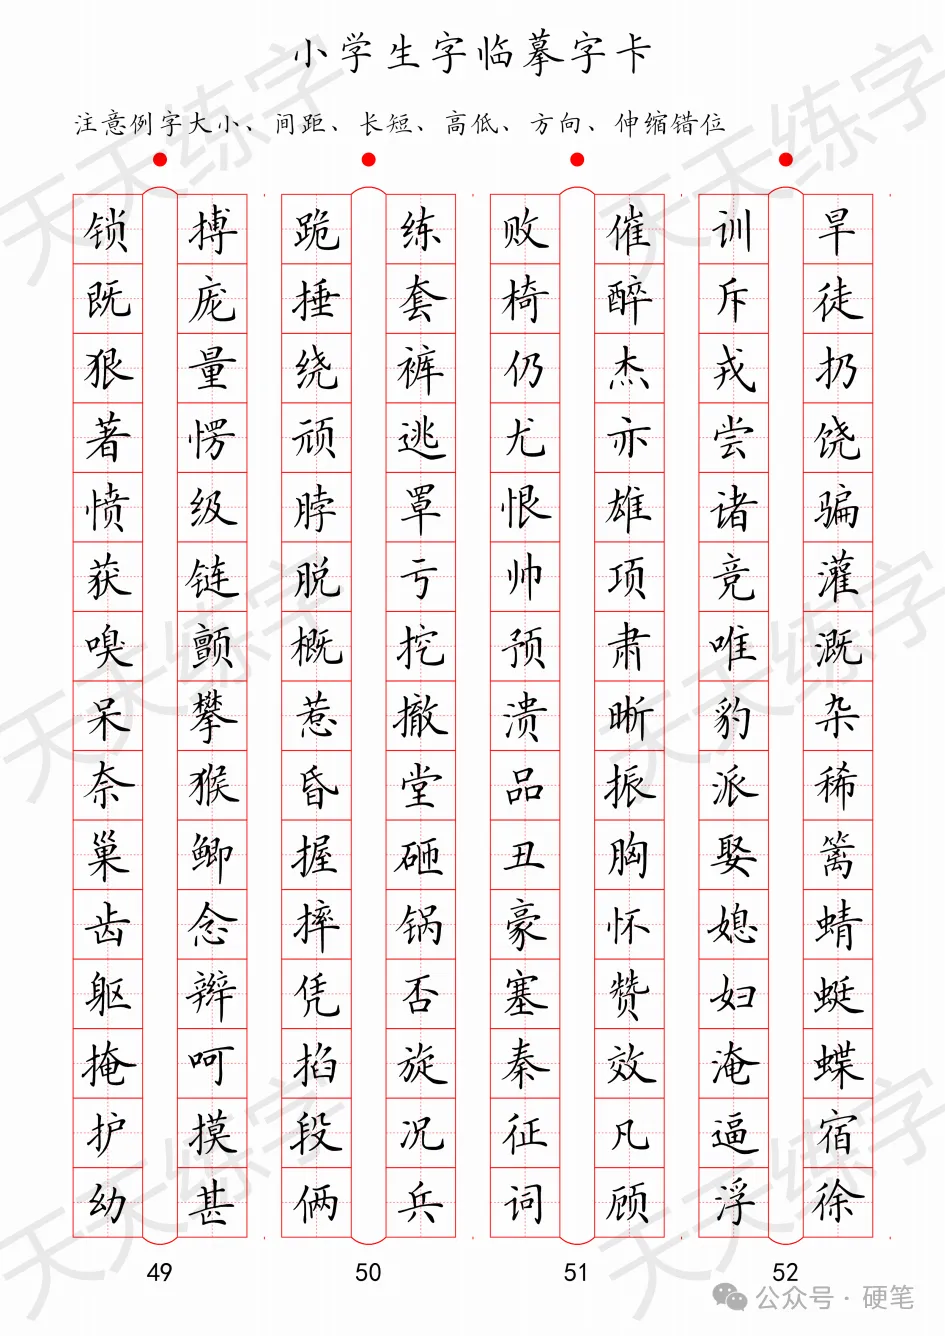 小学生字临摹字卡
注意例字大小、间距、长短、高低、方向、伸缩错位
锁 搏 跪 练 败 催 训 旱
既 庞 捶 套 椅 醉 斥 徒
狠 量 绕 裤 仍 杰 戎 扔
著 愣 顽 逃 尤 亦 尝 饶
愤 级 脖 罩 恨 雄 诸 骗
获 链 脱 亏 帅 项 竞 灌
嗅 颤 概 挖 预 肃 唯 溉
呆 攀 惹 撤 溃 晰 豹 杂
奈 猴 昏 堂 品 振 派 稀
巢 鲫 握 砸 丑 胸 娶 篱
齿 念 摔 锅 豪 怀 媳 蜻
躯 辫 凭 否 塞 赞 妇 蜓
掩 呵 掐 旋 秦 效 淹 蝶
护 摸 段 况 征 凡 逼 宿
幼 甚 俩 兵 词 顾 浮 徐
49 50 51 52
公众号·硬笔
天天练字
天天练字
天天练字
天天练字
天天练字
天天练字